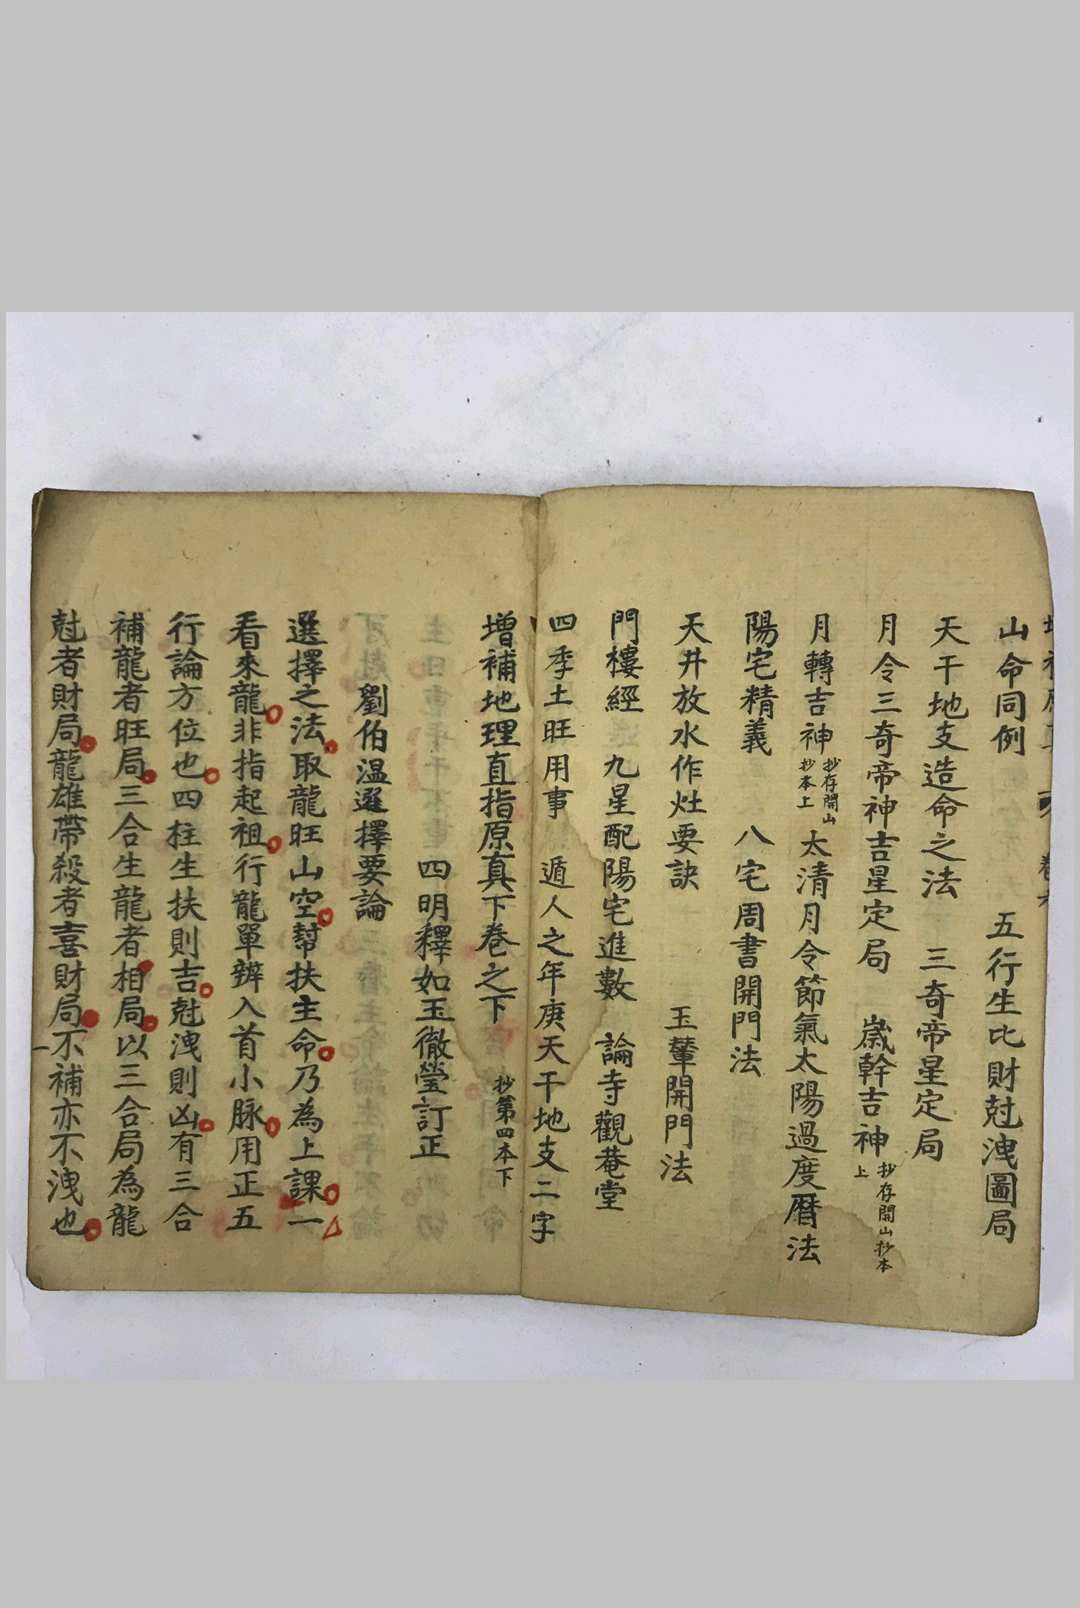 山命同例　五行生比財尅洩圖局
天干地支造命之法　三奇帝星定局
月令三奇帝神吉星定局　嵗幹吉神 抄存開山抄本上
月轉吉神 抄存開山抄本上 太清月令節氣太陽過度曆法
陽宅精義　八宅周書開門法
天井放水作灶要訣　玉輦開門法
門樓經　九星配陽宅進數　論寺觀菴堂
四季土旺用事　遁人之年庚天干地支二字
增補地理直指原真下卷之下　抄第四本下
四明釋如玉徹瑩訂正
劉伯溫選擇要論
選擇之法取龍旺山空幇扶主命乃為上課一
看來龍非指起祖行龍單辨入首小脉用正五
行論方位也四柱生扶則吉尅洩則凶有三合
補龍者旺局三合生龍者相局以三合局為龍
尅者財局龍雄帶殺者喜財局不補亦不洩也